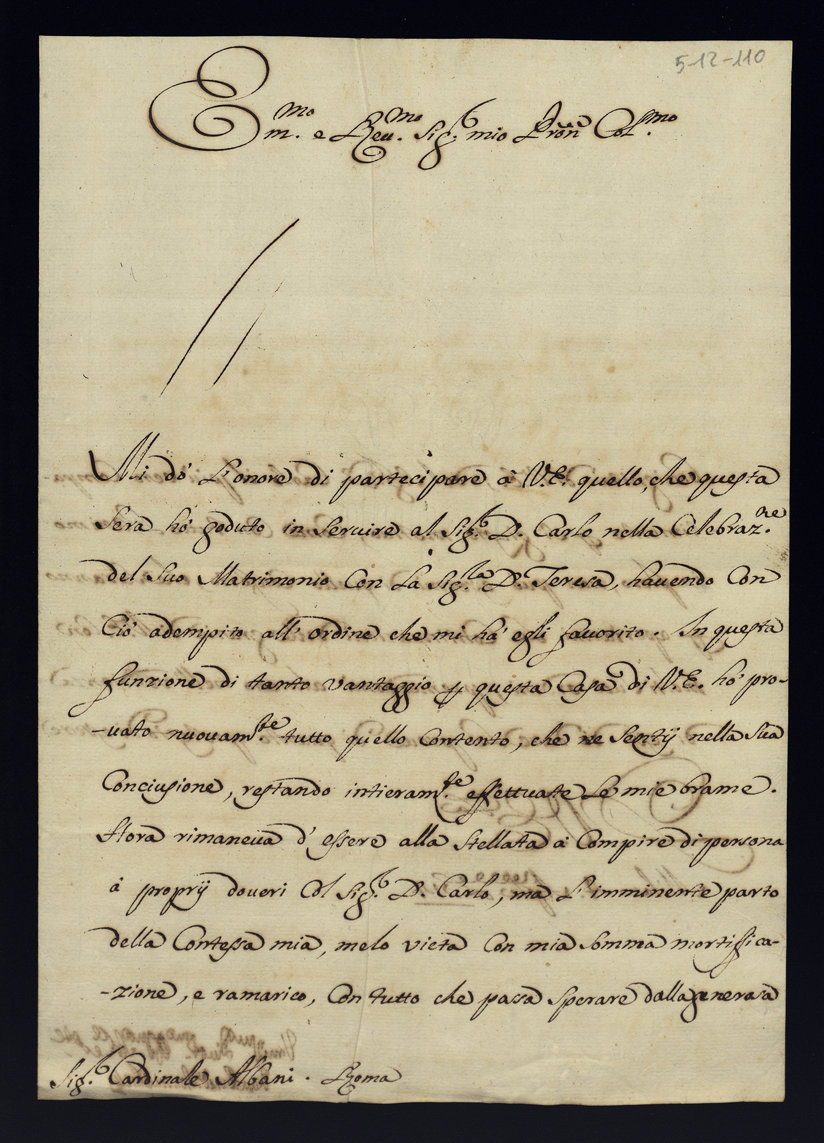 5-12-110
Em.mo e Reu.mo Sig.r mio Pron Col.mo
Mi dó L'onore di partecipare à V.E. quello, che questa
Sera hò goduto in Seruire al Sig.r D. Carlo nella Celebraz.ne
del Suo Matrimonio Con La Sig.la D. Teresa, hauendo Con
Ciò adempito all'ordine che mi hà egli fauorito. In questa
funzione di tanto vantaggio p questa Casa di V.E. hò pro-
-uato nuouam.te tutto quello Contento, che ne Sentij nella Sua
Conclusione, restando intieram.te effettuate Le mie brame.
Hora rimaneua d'essere alla Stellata à Compire di persona
à proprij doueri Col Sig.r D. Carlo, ma L'imminente parto
della Contessa mia, melo vieta Con mia Somma mortifica-
-zione, e ramarico, Con tutto che possa Sperare dalla generosa
Sig.r Cardinale Albani. Roma